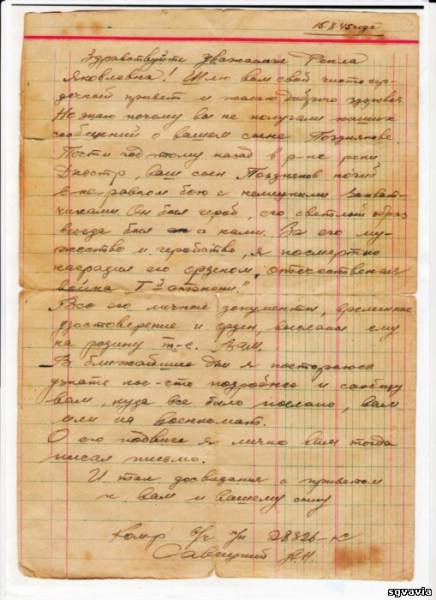 15.8.45 года
Здравствуйте Уважаемая
Яковлевна! Шлю вам свой чистосер-
дечный привет и желаю доброго здоровья.
Не знаю почему вы не получали наших
сообщений о вашем сыне Позднякове.
Почти год тому назад в р-не реки
Днестр, ваш сын Поздняков погиб
в неравном бою с немецкими захват-
чиками. Он был герой, его светлый образ
всегда был с нами. За его му-
жество и геройство, я посмертно
наградил его орденом, отечественная
война I й степени."
Все его личные документы, временное
удостоверение и орден, выслали ему
на родину т-е. вам.
За ближайшие дни я постараюсь
узнать кое-что подробнее и сообщу
вам, куда все было послано, вам
или на военкомат.
О его подвиге я лично вам тогда
писал письмо.
И так досвидания с приветом
к вам и вашему
Комр в/ч п/п 28326-К
Савицкий А.Н.
sgvavia